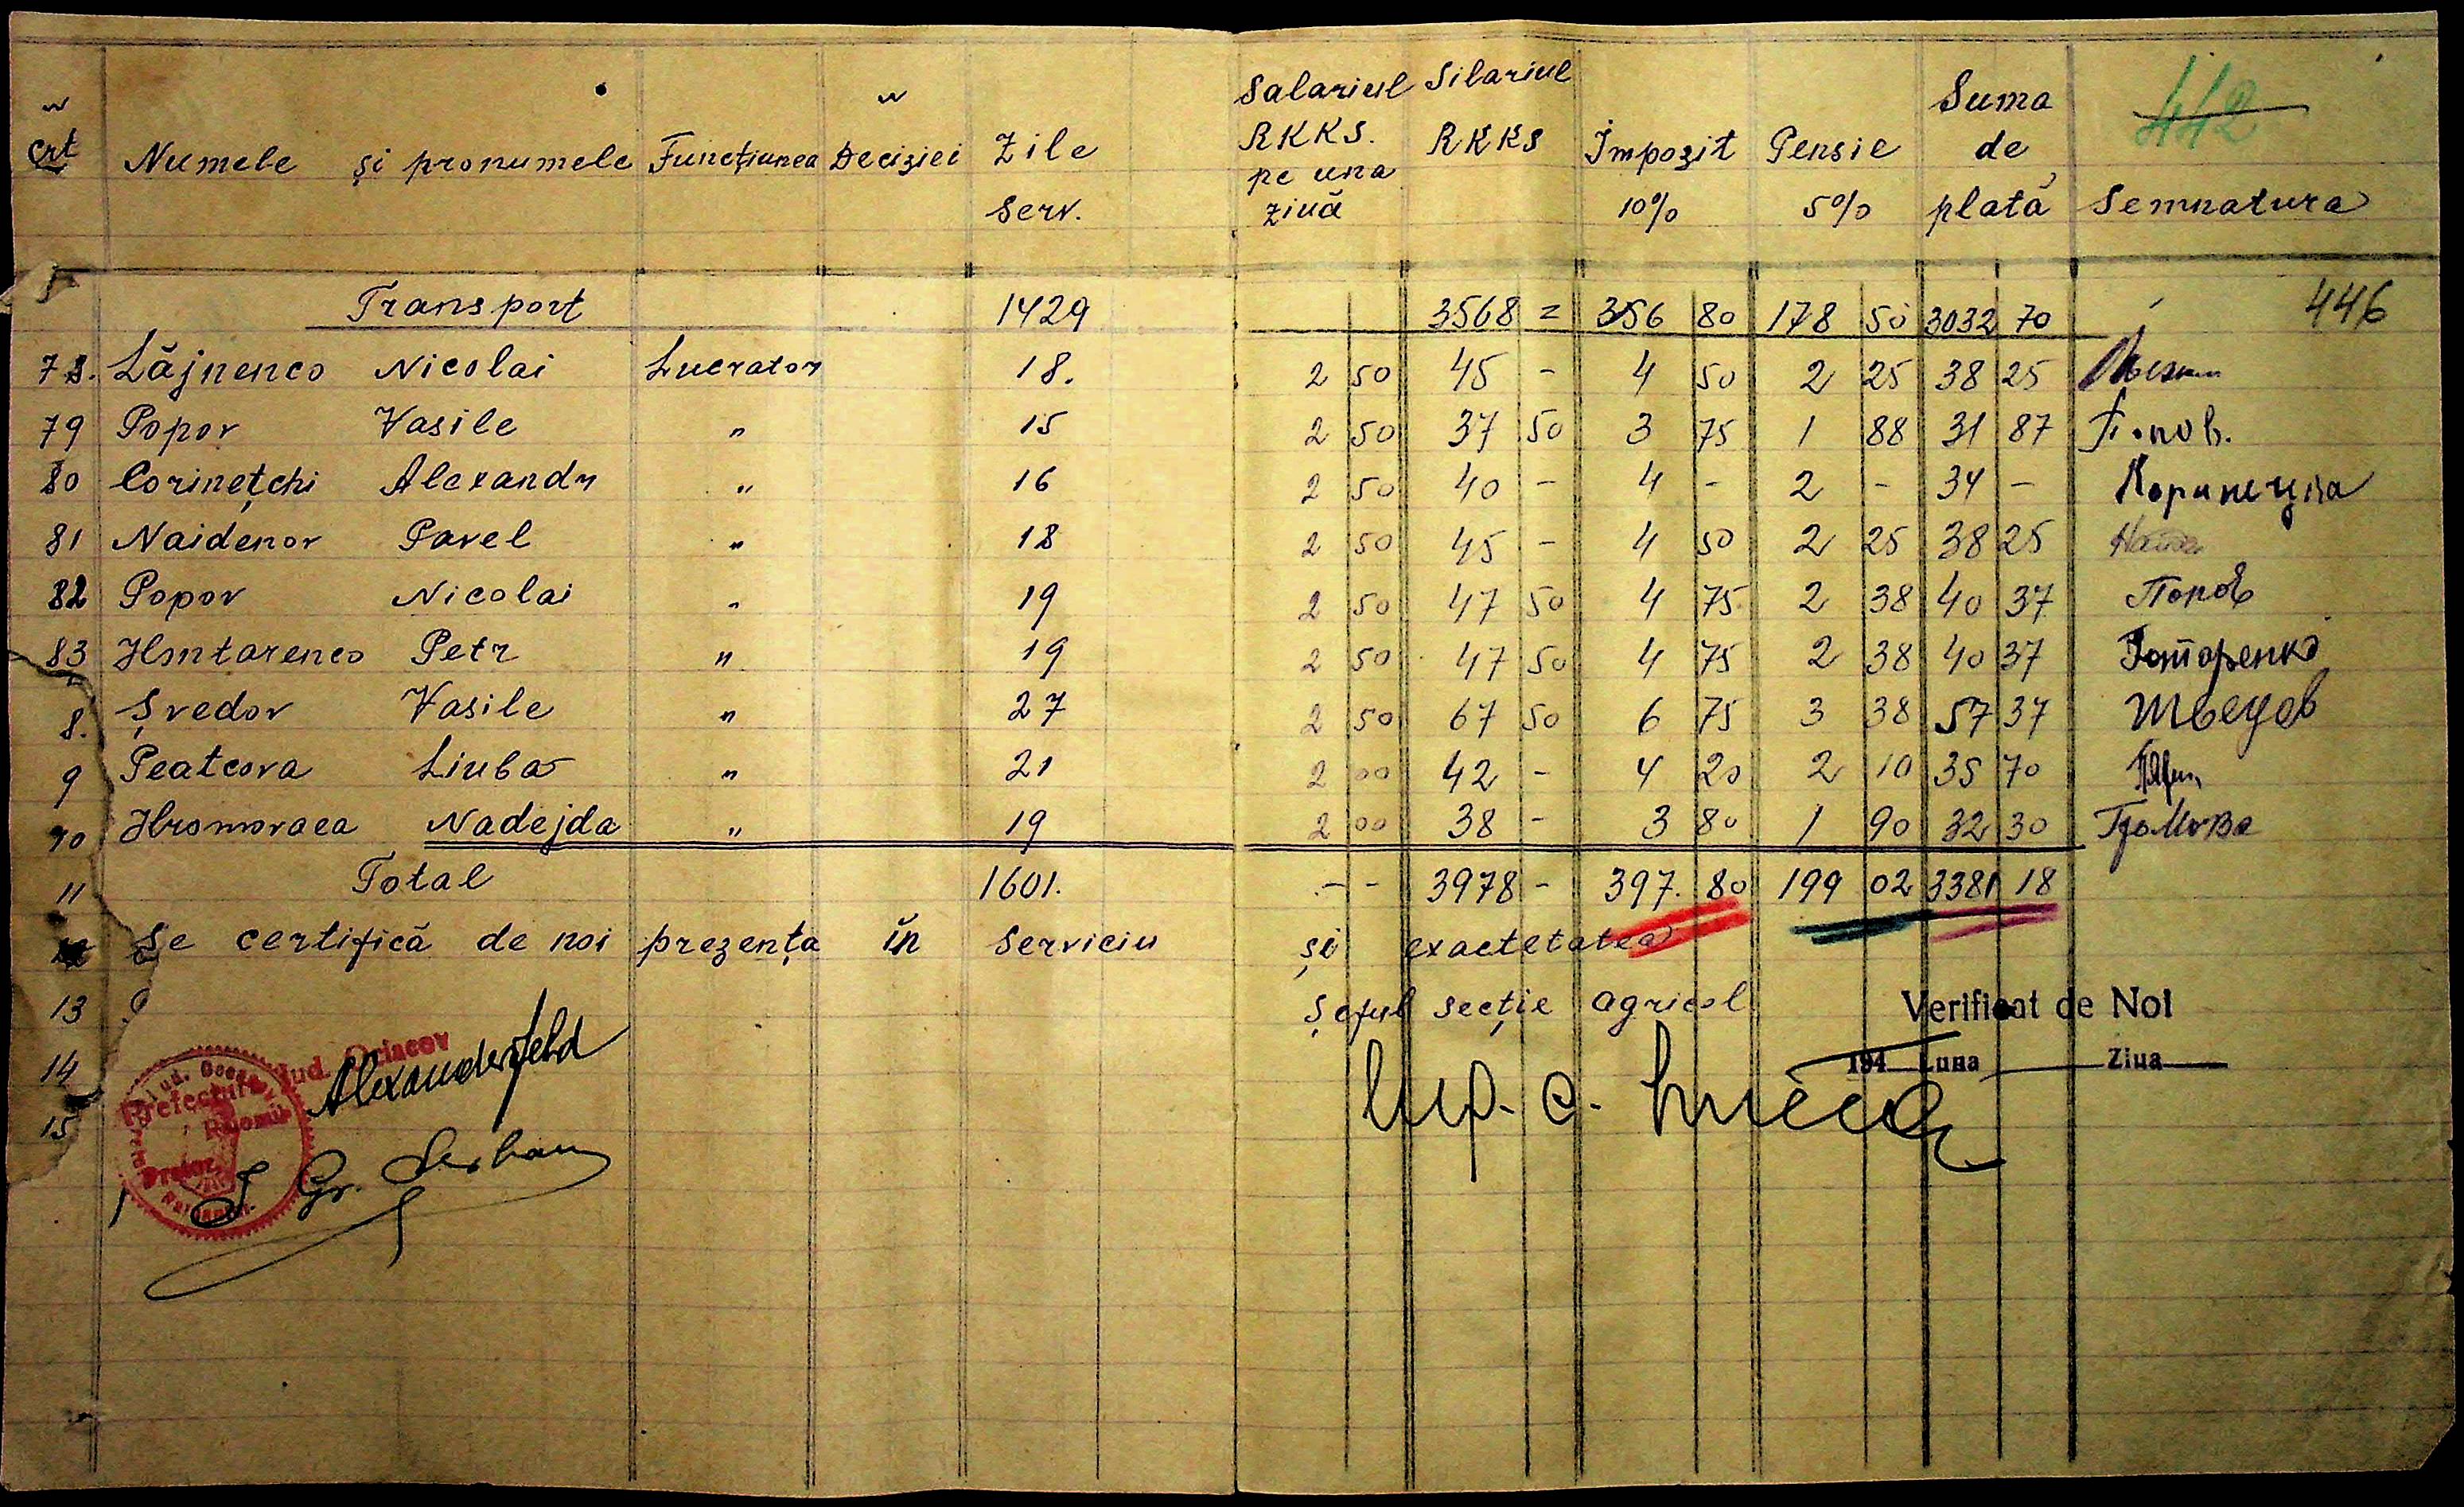 442
crt Numele și pronumele Funcțiunea Deciziei Zile serv. Salariul RKKS. pe una ziuă Silariul RKKS Impozit 10% Pensie 5% Suma de plată Semnatura
Transport 1429 3568 = 356 80 178 50 3032 70 446
78. Lăjnenco Nicolai Lucrator 18. 2 50 45 - 4 50 2 25 38 25
79 Popov Vasile " 15 2 50 37 50 3 75 1 88 31 87 Попов.
80 Corinețchi Alexandr " 16 2 50 40 - 4 - 2 - 34 -
81 Naidenov Pavel " 18 2 50 45 - 4 50 2 25 38 25
82 Popov Nicolai " 19 2 50 47 50 4 75 2 38 40 37 Попов
83 Hontarenco Petr " 19 2 50 47 50 4 75 2 38 40 37 Гонтаренко
8. Șvedov Vasile " 27 2 50 67 50 6 75 3 38 57 37 Швецов
9 Peatcova Liuba " 21 2 00 42 - 4 20 2 10 35 70
90 Hromovaea Nadejda " 19 2 00 38 - 3 80 1 90 32 30 Громова
11 Total 1601. - - 3978 - 397. 80 199 02 3381 18
Se certifică de noi prezența în serviciu și exactetatea
13 Șeful secție agricol Verificat de Noi
14 194 Luna Ziua
15
Prefectura Jud. Oceacov
Alexanderfeld
Pretor
Gr. Serban